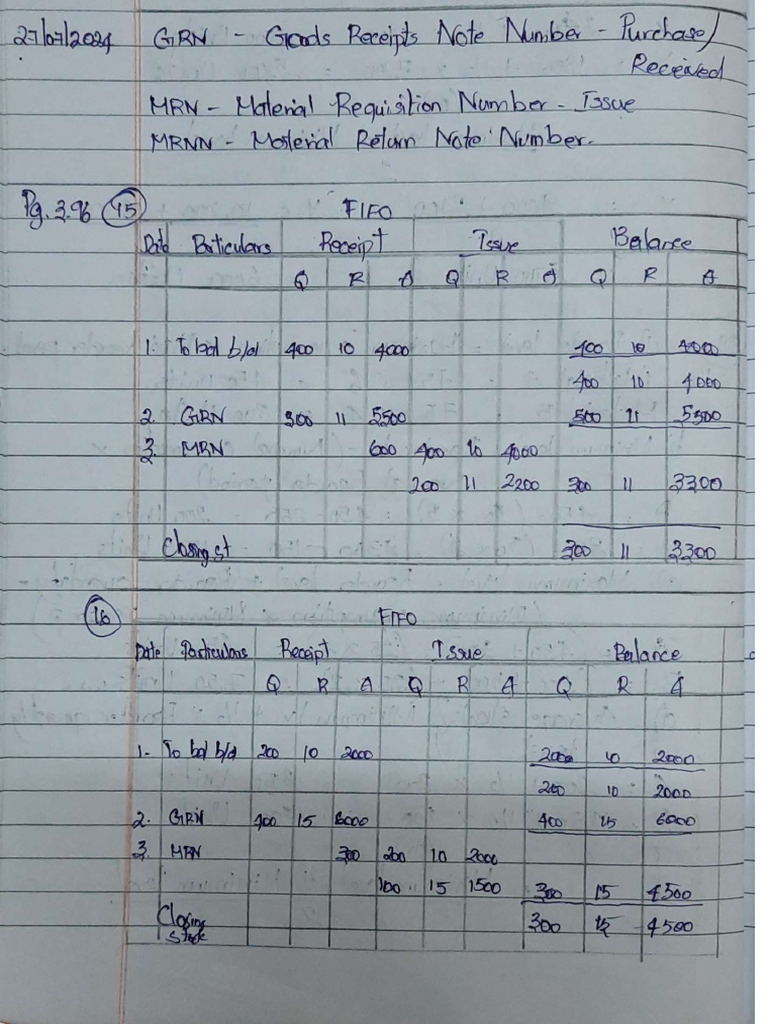 27/07/2024 GRN - Goods Receipts Note Number - Purchase/
Received
MRN - Material Requisition Number - Issue
MRNN - Material Return Note Number.
Pg. 3.96 15 FIFO
Date Particulars Receipt Issue Balance
Q R A Q R A Q R A
1. To bal b/d 400 10 4000 400 10 4000
400 10 4000
2. GRN 500 11 5500 500 11 5500
3. MRN 600 400 10 4000
200 11 2200 300 11 3300
Closing st 300 11 3300
16 FIFO
Date Particulars Receipt Issue Balance
Q R A Q R A Q R A
1- To bal b/d 200 10 2000 2000 10 2000
200 10 2000
2. GRN 400 15 6000 400 15 6000
3. MRN 300 200 10 2000
100 15 1500 300 15 4500
Closing 300 15 4500
stock